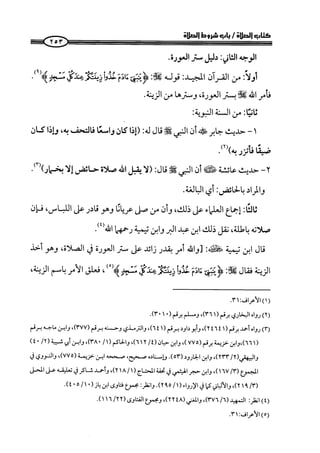 كتاب الصلاة / باب شروط الصلاة
٢٥٣
الوجه الثاني: دليل ستر العورة.
أولاً: من القرآن المجيد: قوله ﷺ: ﴿يَٰبَنِيٓ ءَادَمَ خُذُواْ زِينَتَكُمْ عِندَ كُلِّ مَسْجِدٍ﴾(١).
فأمر الله ﷺ بستر العورة، وسترها من الزينة.
ثانيًا: من السنة النبوية:
١- حديث جابر ﷺ أن النبي ﷺ قال له: (إذا كان واسعًا فالتحف به، وإذا كان
ضيقًا فأتزر به)(٢).
٢- حديث عائشة ﷺ أن النبي ﷺ قال: (لا يقبل الله صلاة حائض إلا بخمار)(٣).
والمراد بالحائض: أي البالغة.
ثالثًا: إجماع العلماء على ذلك، وأن من صلى عريانًا وهو قادر على اللباس، فإن
صلاته باطلة، نقل ذلك ابن عبد البر وابن تيمية رحمهما الله(٤).
قال ابن تيمية ﷺ: [والله أمر بقدر زائد على ستر العورة في الصلاة، وهو أخذ
الزينة فقال: ﷺ: ﴿يَٰبَنِيٓ ءَادَمَ خُذُواْ زِينَتَكُمْ عِندَ كُلِّ مَسْجِدٍ﴾(٥)، فعلق الأمر باسم الزينة،
(١) الأعراف:٣١.
(٢) رواه البخاري برقم (٣٦١)، ومسلم برقم (٣٠١٠).
(٣) رواه أحمد برقم (٢٤٦٤١)، وأبو داود برقم (٦٤١)، والترمذي وحسنه برقم (٣٧٧)، وابن ماجه برقم
(٦٦١)، وابن خزيمة برقم (٧٧٥)، وابن حبان (٦١٢/٤)، والحاكم (٣٨٠/١)، وابن أبي شيبة (٤٠/٢)
والبيهقي (٢٣٣/٢)، وابن الجارود (٥٣). وإسناده صحيح، صححه ابن خزيمة (٧٧٥)، والنووي في
المجموع (١٦٧/٣)، وابن حجر الهيتمي في تحفة المحتاج (٢١٨/١)، وأحمد شاكر في تعليقه على المحلى
(٢١٩/٣)، والألباني كما في الإرواء (٢٩٥/١). وانظر: مجموع فتاوى ابن باز (٤٠٥/١٠).
(٤) انظر: التمهيد (٣٧٦/٦)، والمغني (٢٢٤٨)، ومجموع الفتاوى (١١٦/٢٢).
(٥) الأعراف:٣١.